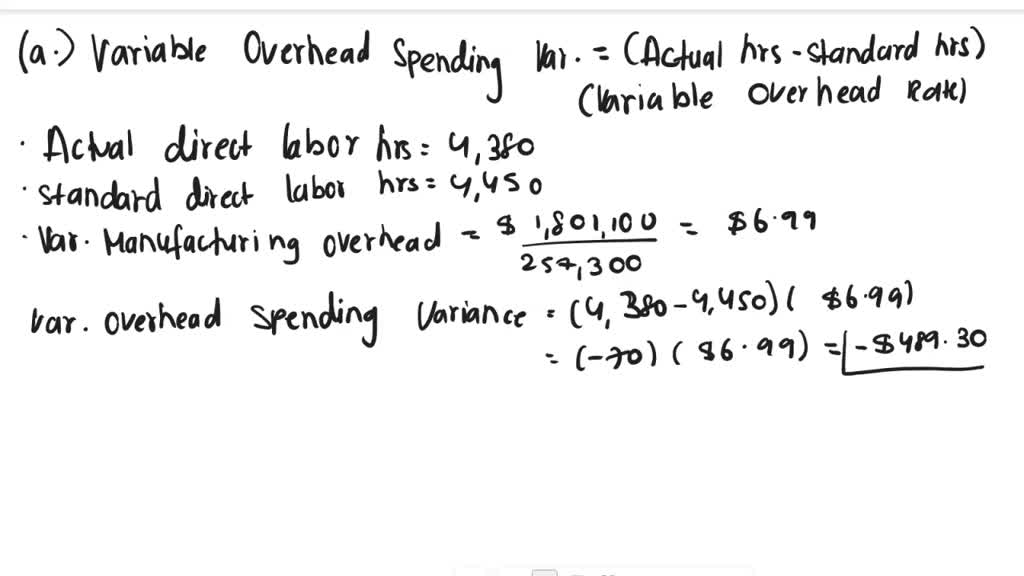 (a.) Variable Overhead Spending Var. = (Actual hrs - standard hrs)
(Variable Overhead Rate)
· Actual direct labor hrs = 4,380
· standard direct labor hrs = 4,450
· Var. Manufacturing overhead = $ 1,801,100 / 257,300 = $6.99
Var. overhead spending variance = (4,380 - 4,450) ( $6.99)
= (-70) ( $6.99) = -$489.30